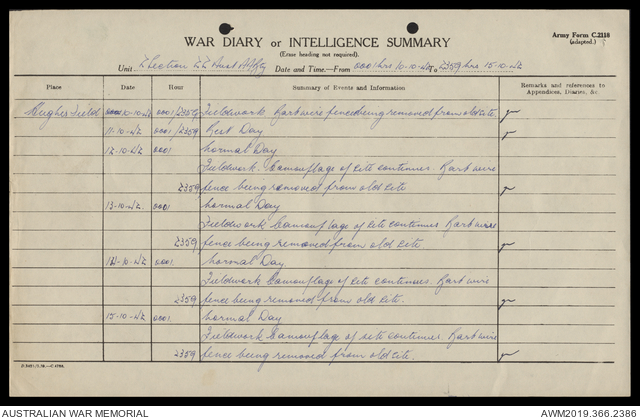 Army Form C.2118
(adapted.)
WAR DIARY or INTELLIGENCE SUMMARY
(Erase heading not required).
Unit Section Aust Date and Time—From 0001 hrs 10-10-42 To 2359 hrs 15-10-42
Place Date Hour Summary of Events and Information Remarks and references to Appendices, Diaries, &c.
Hughes Field 10-10-42 0001/2359 Fieldwork. Barbwire fence being removed from old site.
11-10-42 0001/2359 Rest Day
12-10-42 0001 Normal Day
Fieldwork. Camouflage of site continues. Barbwire
2359 fence being removed from old site
13-10-42. 0001 Normal Day
Fieldwork Camouflage of site continues. Barbwire
2359 fence being removed from old site.
14-10-42 0001 Normal Day
Fieldwork Camouflage of site continues. Barbwire
2359 fence being removed from old site.
15-10-42 0001 Normal Day
Fieldwork Camouflage of site continues. Barbwire
2359 fence being removed from old site.
AUSTRALIAN WAR MEMORIAL AWM2019.366.2386